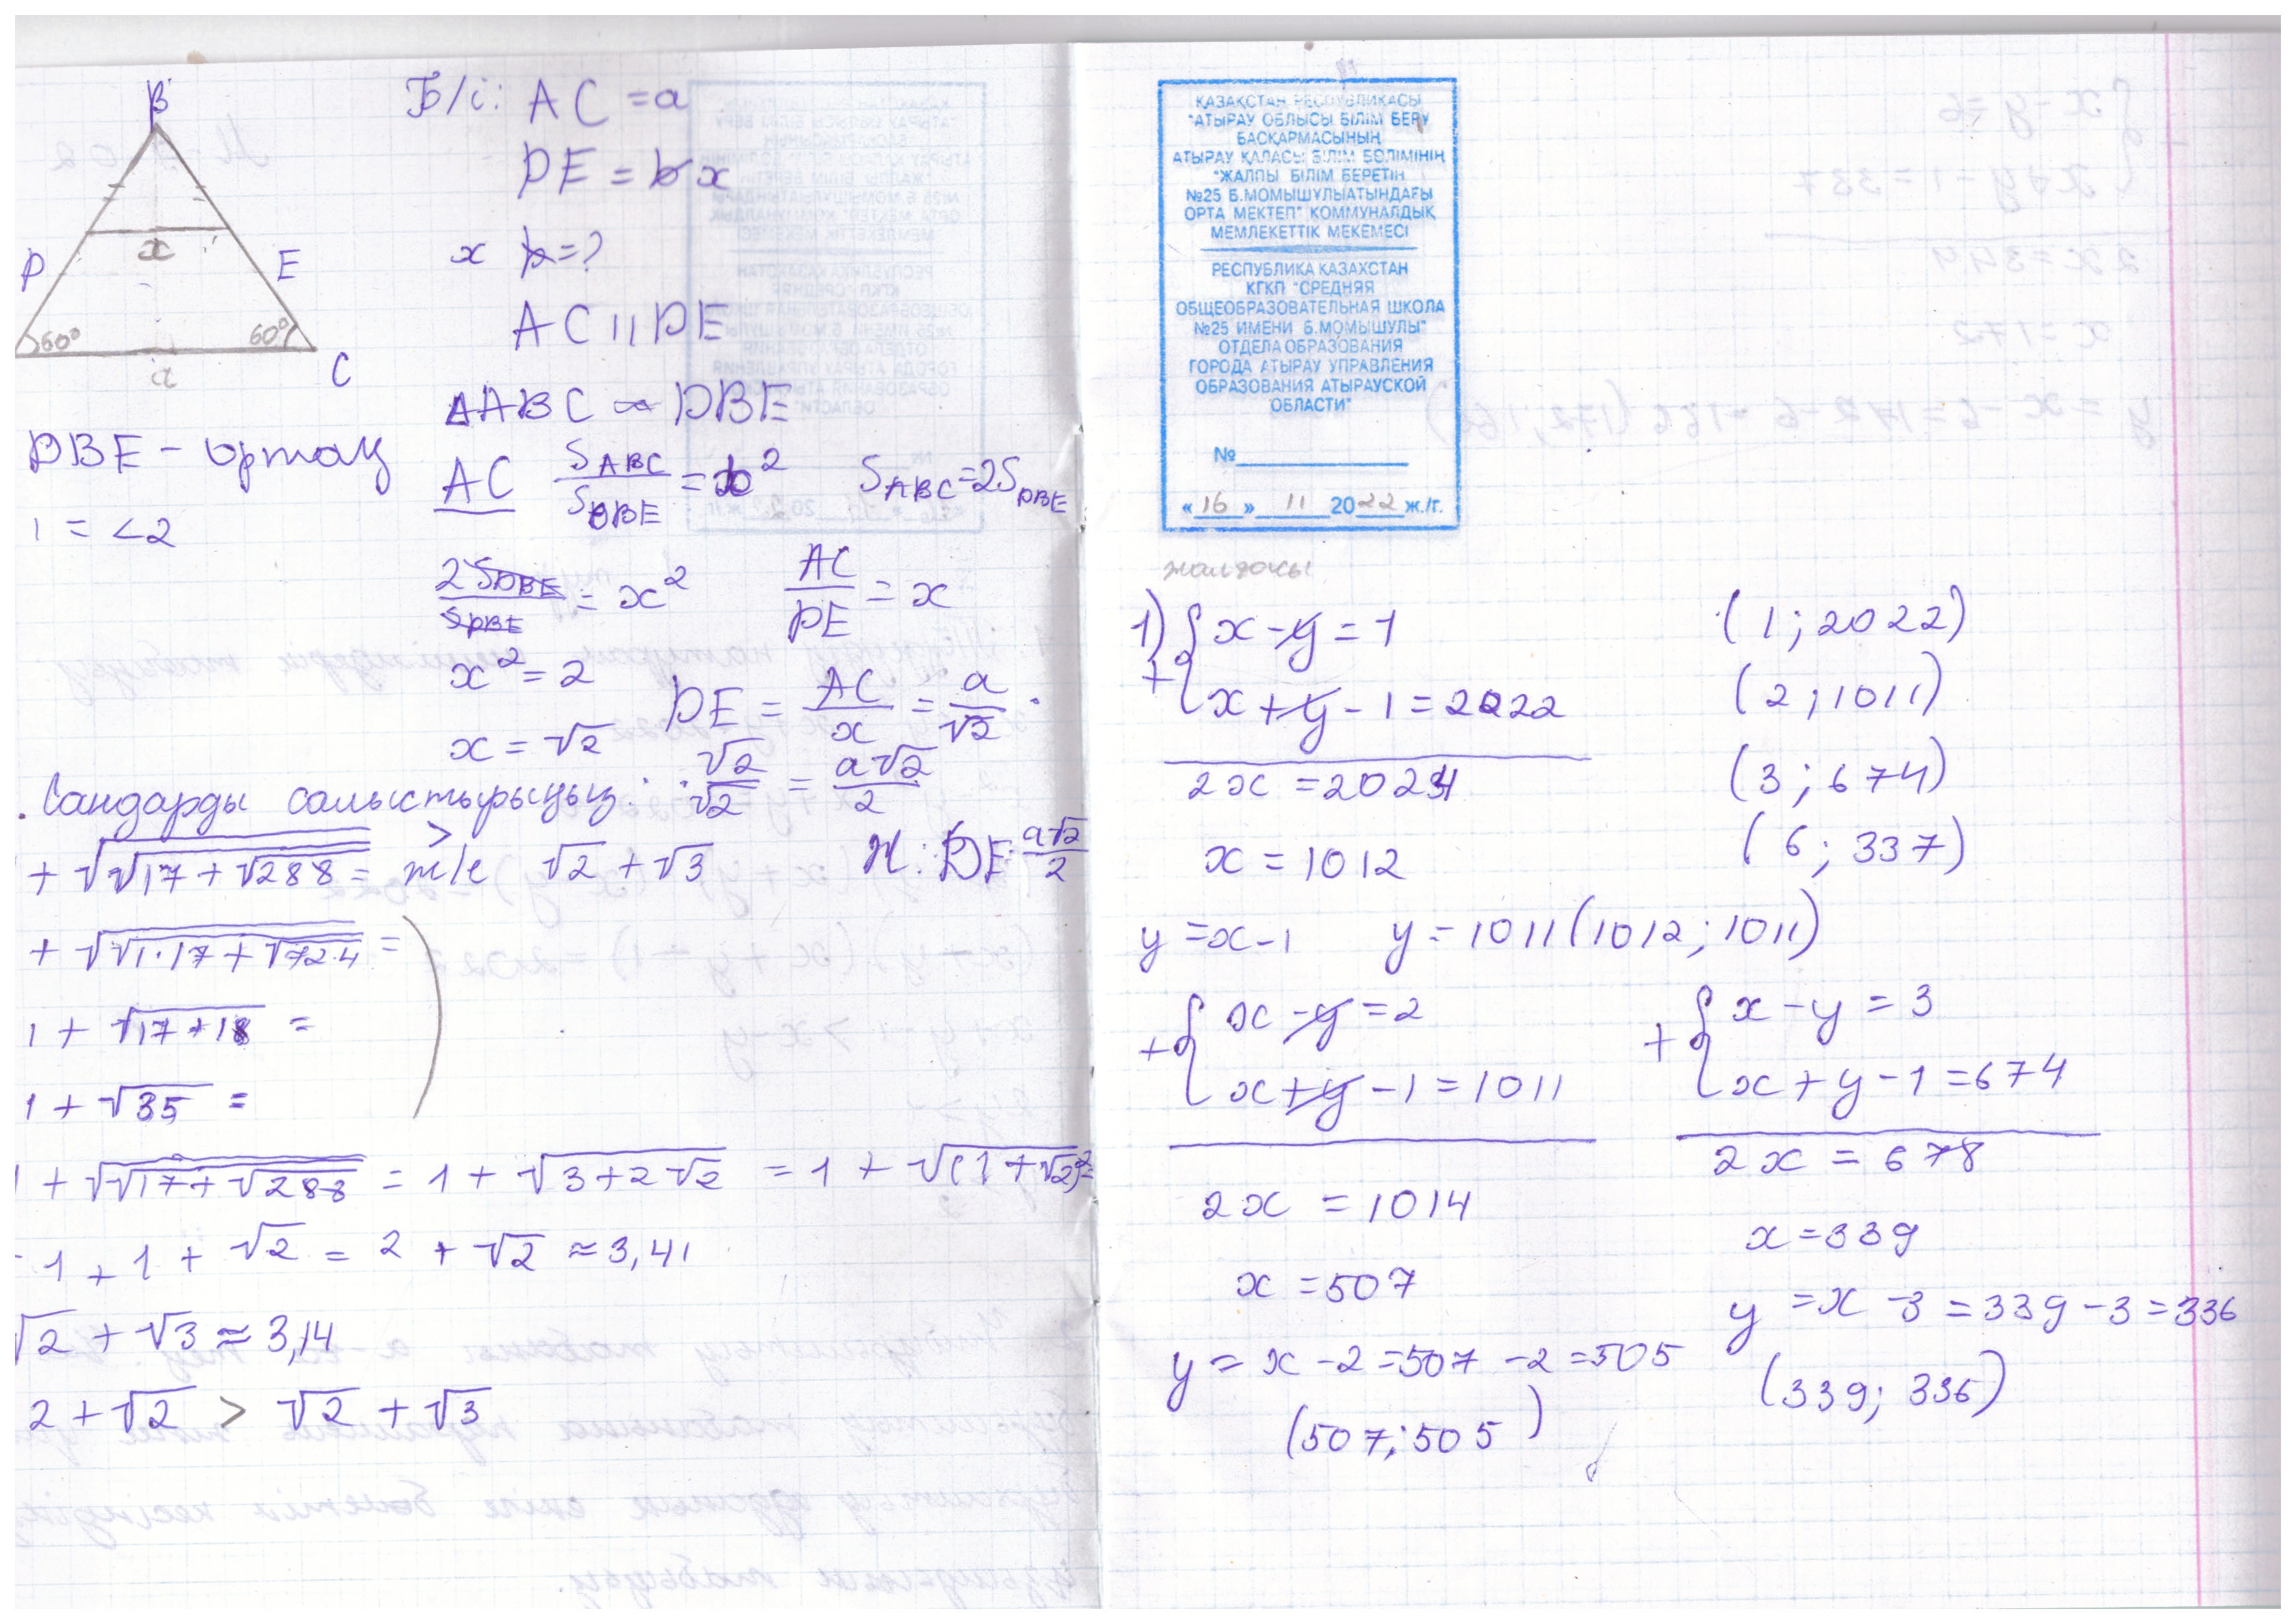 B
Б/і: AC = a
DE = x
D x E
x = ?
AC || DE
60° 60°
a C
ΔABC ∞ DBE
DBE - ортақ
AC S_ABC/S_DBE = x² S_ABC = 2S_DBE
1 = ∠2
2S_DBE/S_DBE = x² AC/DE = x
x² = 2
DE = AC/x = a/√2 ·
x = √2
· √2/√2 = a√2/2
. Сандарды салыстырыңыз:
+ √√17+√288 = ж/е > √2 + √3 Ж: DE = a√2/2
+ √√1·17+√72·4 =
1 + √17+18 =
1 + √35 =
1 + √√17+√288 = 1 + √3+2√2 = 1 + √(1+√2)² =
1 + 1 + √2 = 2 + √2 ≈ 3,41
√2 + √3 ≈ 3,14
2 + √2 > √2 + √3
ҚАЗАҚСТАН РЕСПУБЛИКАСЫ
"АТЫРАУ ОБЛЫСЫ БІЛІМ БЕРУ
БАСҚАРМАСЫНЫҢ
АТЫРАУ ҚАЛАСЫ БІЛІМ БӨЛІМІНІҢ
"ЖАЛПЫ БІЛІМ БЕРЕТІН
№25 Б.МОМЫШУЛЫАТЫНДАҒЫ
ОРТА МЕКТЕП" КОММУНАЛДЫҚ
МЕМЛЕКЕТТІК МЕКЕМЕСІ
РЕСПУБЛИКА КАЗАХСТАН
КГКП "СРЕДНЯЯ
ОБЩЕОБРАЗОВАТЕЛЬНАЯ ШКОЛА
№25 ИМЕНИ Б.МОМЫШУЛЫ"
ОТДЕЛА ОБРАЗОВАНИЯ
ГОРОДА АТЫРАУ УПРАВЛЕНИЯ
ОБРАЗОВАНИЯ АТЫРАУСКОЙ
ОБЛАСТИ"
№
«16» 11 2022 ж./г.
жалғасы
1) { x - y = 1 (1; 2022)
+ { x + y - 1 = 2022 (2; 1011)
2x = 2024 (3; 674)
x = 1012 (6; 337)
y = x - 1 y = 1011 (1012; 1011)
+ { x - y = 2
x + y - 1 = 1011
2x = 1014
x = 507
y = x - 2 = 507 - 2 = 505
(507; 505)
+ { x - y = 3
x + y - 1 = 674
2x = 678
x = 339
y = x - 3 = 339 - 3 = 336
(339; 336)